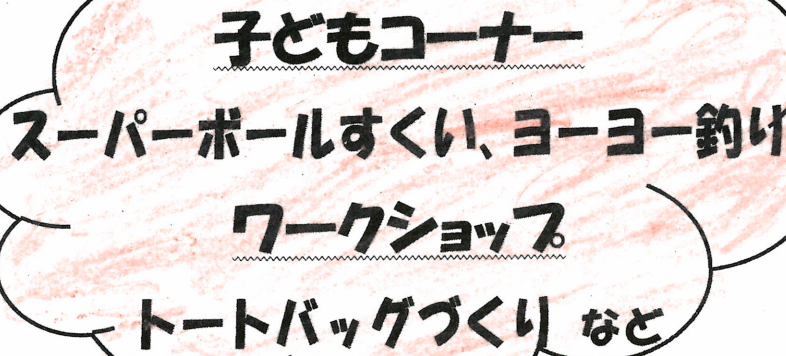 子どもコーナー
スーパーボールすくい、ヨーヨー釣け
ワークショップ
トートバッグづくり など